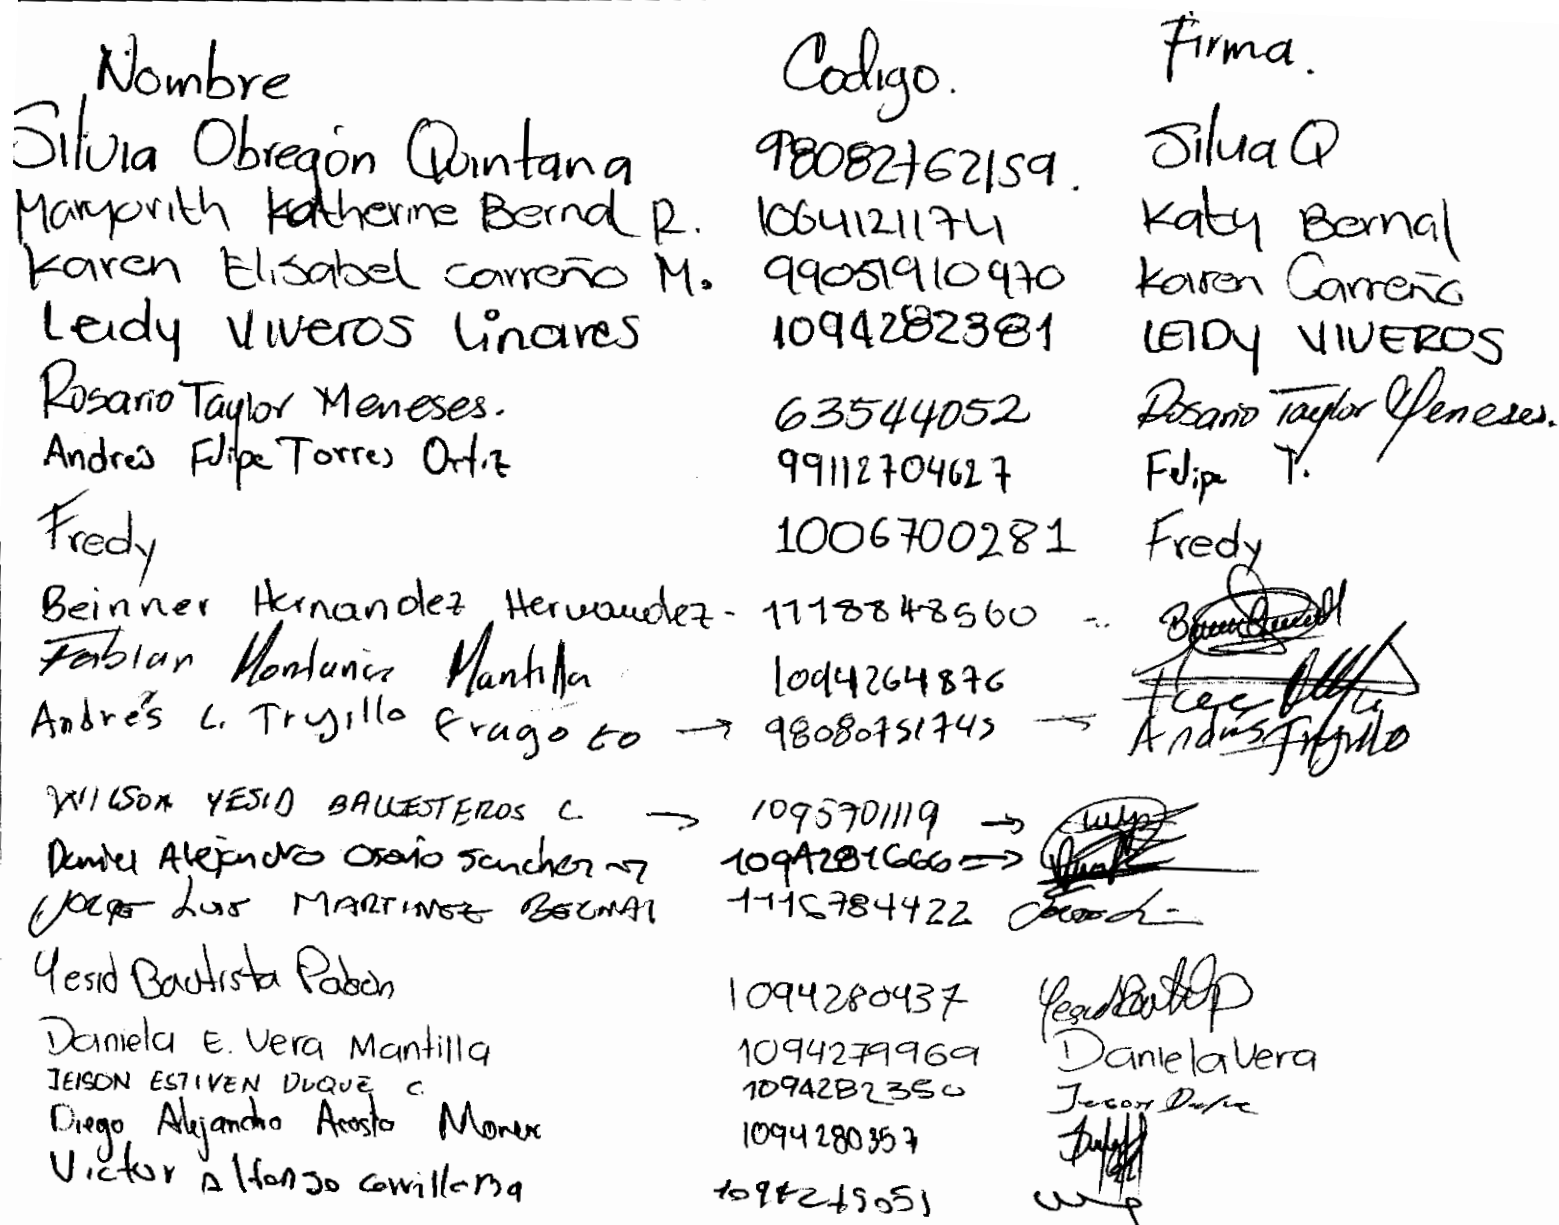 Nombre Codigo. Firma.
Silvia Obregón Quintana 98082762159. Silvia Q
Maryorith Katherine Bernal R. 1064121174 Katy Bernal
Karen Elisabel Carreño M. 99051910970 Karen Carreño
Leidy Viveros Linares 1094282381 LEIDY VIVEROS
Rosario Taylor Meneses. 63544052 Rosario Taylor Meneses.
Andres Felipe Torres Ortiz 99112704627 Felipe T.
Fredy 1006700281 Fredy
Beinner Hernandez Hernandez - 1118848560
Fabian Mantilla 1094264876
Andrés C. Trujillo Fragozo → 98080751745 — Andres Trujillo
WILSON YESID BALLESTEROS C → 1095701119 →
Daniel Alejandro Osorio Sanchez 1094281666 ⇒
Jorge Luis MARTINEZ BERNAL 1116784422
Yesid Bautista Pabon 1094280437
Daniela E. Vera Mantilla 1094279969 Daniela Vera
JEISON ESTIVEN DUQUE C. 1094282350 Jeison Duque
Diego Alejandro Acosta 1094280357
Victor Alfonso 1094279051